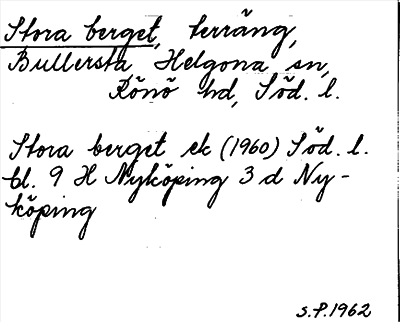 Stora berget, terräng,
Bullersta Helgona sn,
Rönö hd, Söd. l.
Stora berget ek (1960) Söd. l.
bl. 9 H Nyköping 3 d Ny-
köping
S.P.1962